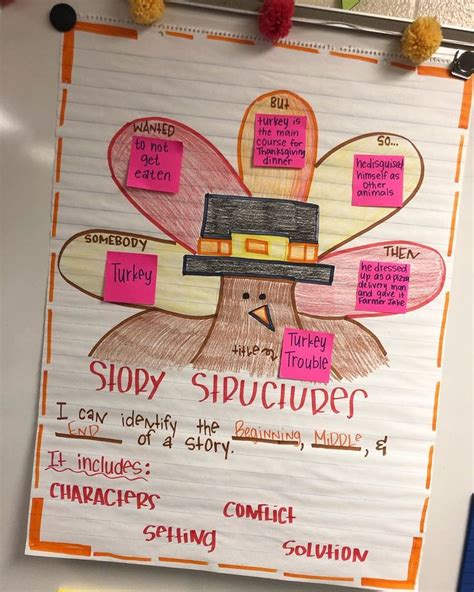 SOMEBODY
Turkey
WANTED
to not
get
eaten
BUT
turkey is
the main
course for
Thanksgiving
dinner
SO...
he disguised
himself as
other
animals
THEN
he dressed
up as a pizza
delivery man
and gave it
Farmer Jake
title
Turkey
Trouble
STORY STRUCTURES
I can identify the Beginning, Middle, &
End of a story.
It includes:
CHARACTERS
CONFLICT
SETTING
SOLUTION